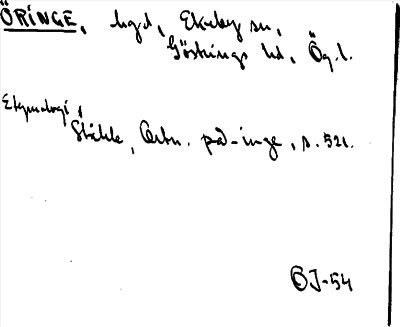 ÖRINGE, hgd, Ekeby sn,
Göstrings hd, Ög. l.
Etymologi:
Ståhle, Ortn. på -inge, s. 521.
ÖJ-54